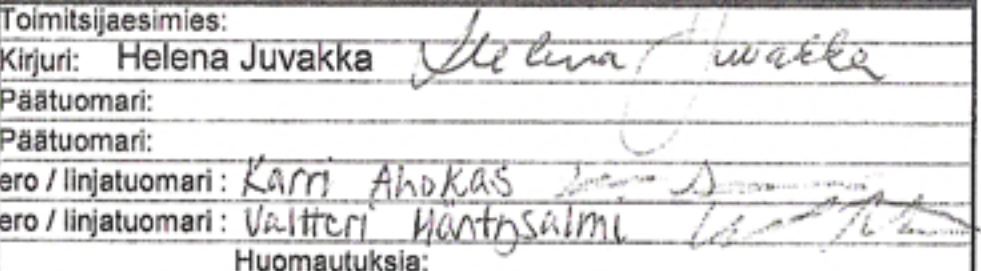 Toimitsijaesimies:
Kirjuri: Helena Juvakka Helena Juvakka
Päätuomari:
Päätuomari:
ero / linjatuomari : Karri Ahokas
ero / linjatuomari : Valtteri Mäntysalmi
Huomautuksia: